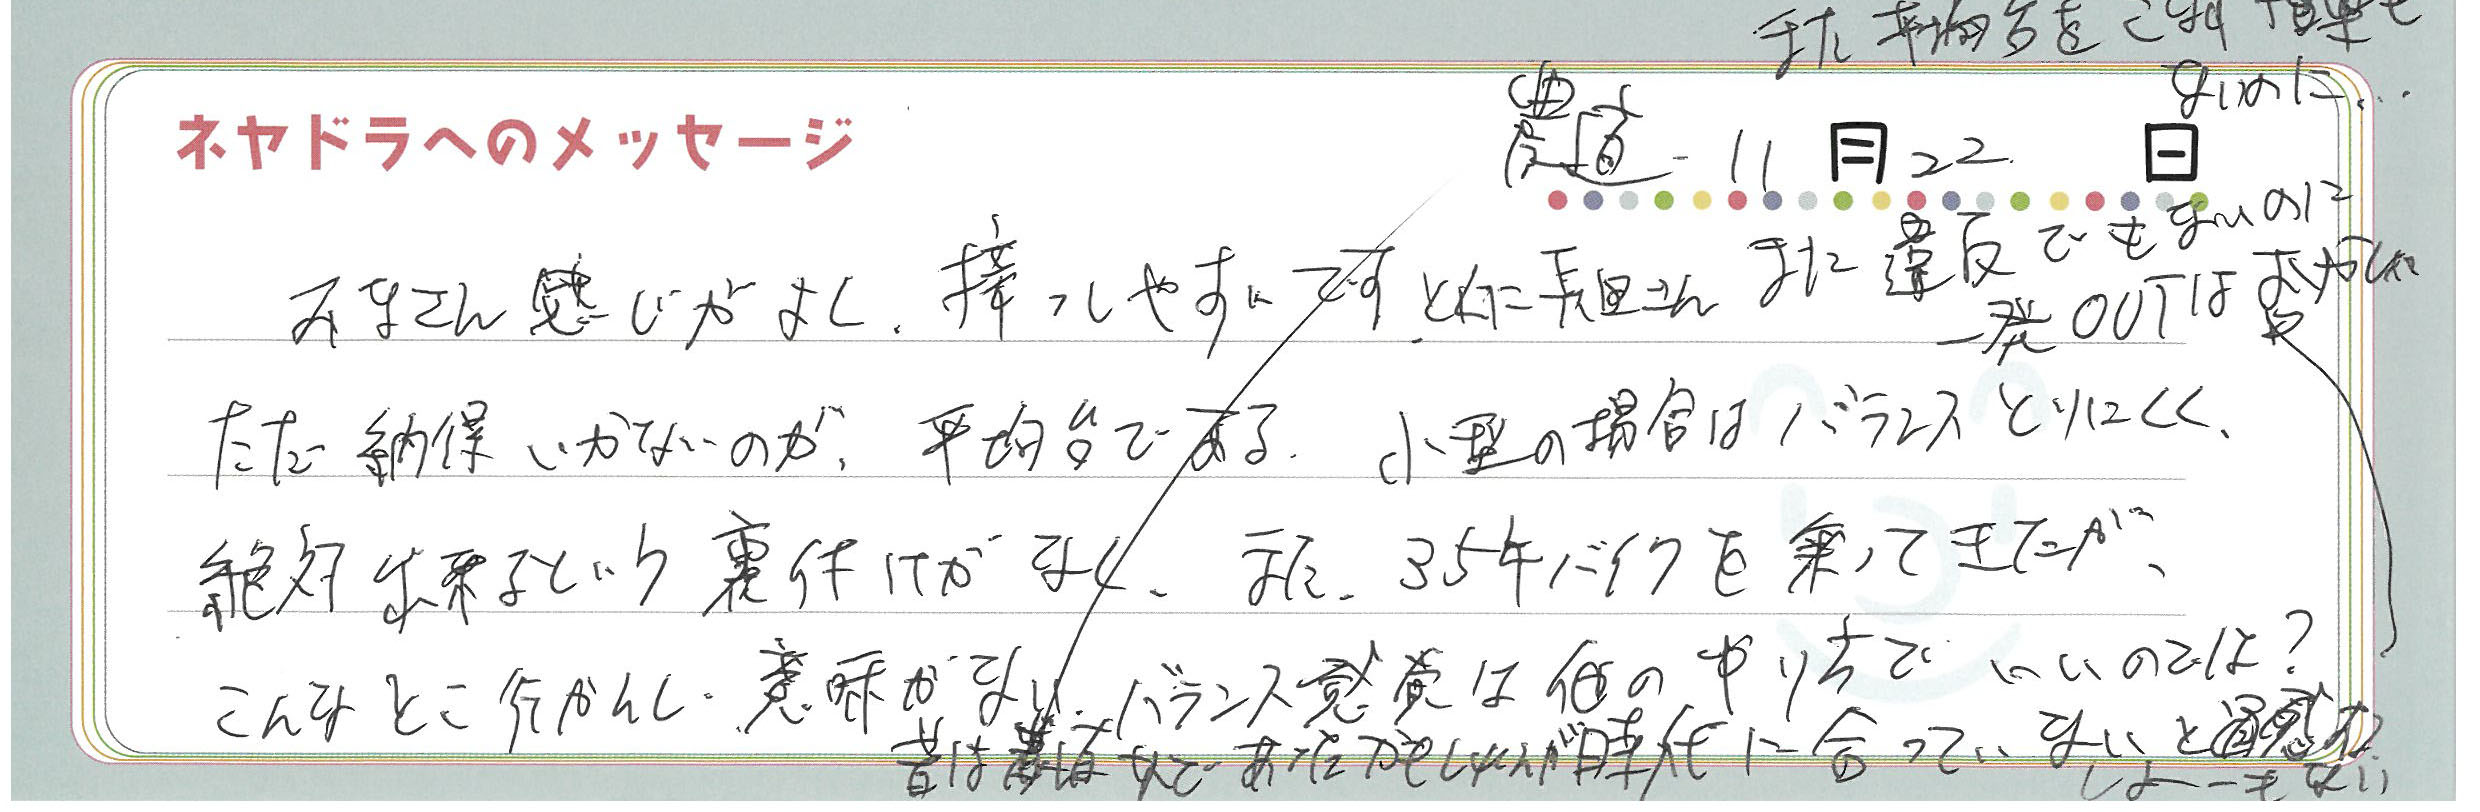 また平均台をこなす授業も
ないのに...
ネヤドラへのメッセージ
農道 - 11月22日
みなさん感じがよく、接っしやすいです。とくに長田さん
また違反でもないのに
一発OUTはおかしい
ただ納得いかないのが、平均台である。小型の場合はバランスとりにくく、
絶対出来るという裏付けがなく、また、35年バイクを乗ってきたが、
こんなとこ行かんし、意味がない。バランス感覚は他のやり方でいいのでは?
昔は農道などであったかもしれんが時代に合っていないと
しょーもない